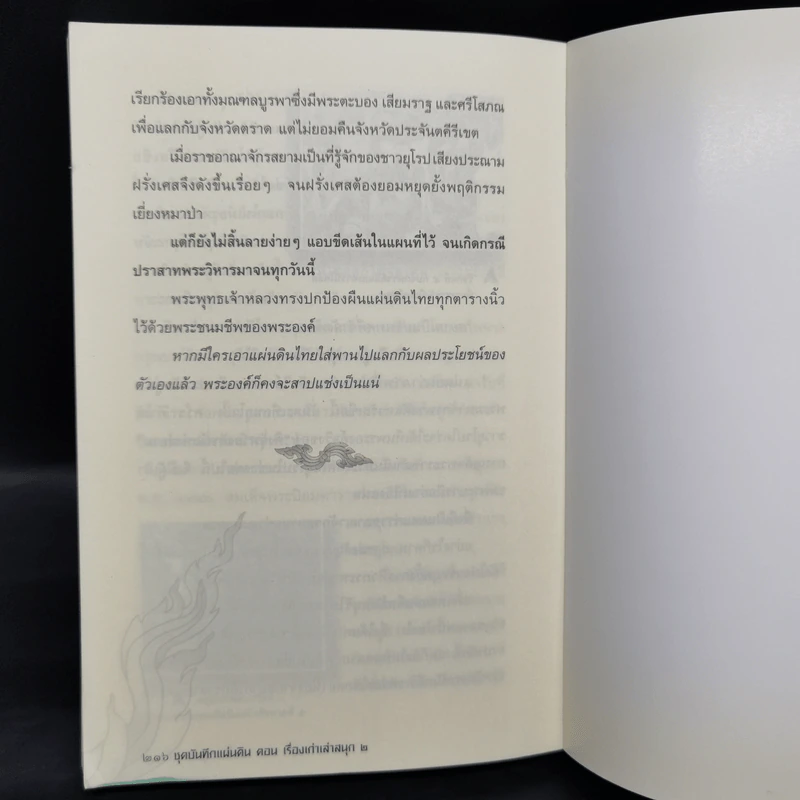 เรียกร้องเอาทั้งมณฑลบูรพาซึ่งมีพระตะบอง เสียมราฐ และศรีโสภณ
เพื่อแลกกับจังหวัดตราด แต่ไม่ยอมคืนจังหวัดประจันตคีรีเขต
เมื่อราชอาณาจักรสยามเป็นที่รู้จักของชาวยุโรป เสียงประณาม
ฝรั่งเศสจึงดังขึ้นเรื่อยๆ จนฝรั่งเศสต้องยอมหยุดยั้งพฤติกรรม
เยี่ยงหมาป่า
แต่ก็ยังไม่สิ้นลายง่ายๆ แอบขีดเส้นในแผนที่ไว้ จนเกิดกรณี
ปราสาทพระวิหารมาจนทุกวันนี้
พระพุทธเจ้าหลวงทรงปกป้องผืนแผ่นดินไทยทุกตารางนิ้ว
ไว้ด้วยพระชนมชีพของพระองค์
หากมีใครเอาแผ่นดินไทยใส่พานไปแลกกับผลประโยชน์ของ
ตัวเองแล้ว พระองค์ก็คงจะสาปแช่งเป็นแน่
๒๑๖ ชุดบันทึกแผ่นดิน ตอน เรื่องเก่าเล่าสนุก ๒